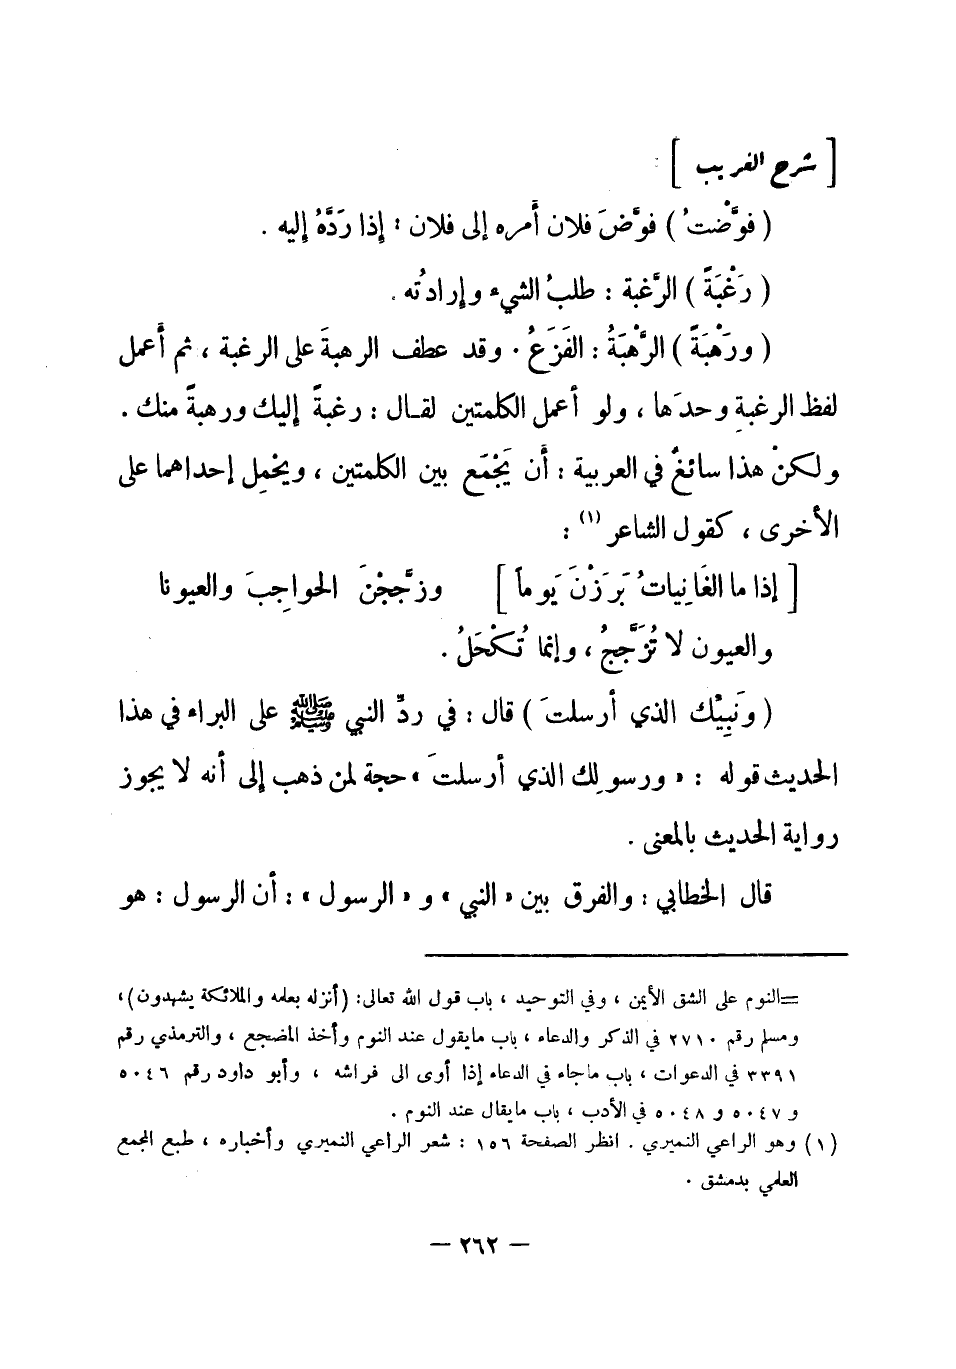 [ شرح الغريب ]
( فوَّضْتُ ) فوَّضَ فلان أَمره إلى فلان : إذا رَدَّهُ إليه .
( رَغْبَةً ) الرَّغبة : طلبُ الشيء وإرادتُه .
( ورَهْبَةً ) الرَّهْبَةُ : الفَزَعُ . وقد عطف الرهبةَ على الرغبة ، ثم أَعمل
لفظ الرغبةِ وحدَها ، ولو أعمل الكلمتين لقال : رغبةً إليك ورهبةً منك .
ولكنْ هذا سائغٌ في العربية : أَن يَجْمَع بين الكلمتين ، ويحْمِل إحداهما على
الأخرى ، كقول الشاعر (١) :
[ إذا ما الغَانِياتُ بَرَزْنَ يَوماً ] وزَجَّجْنَ الحواجِبَ والعيونا
والعيون لا تُزَجَّجُ ، وإنما تُكْحَلُ .
( وَنَبِيِّك الذي أرسلتَ ) قال : في ردِّ النبي ﷺ على البراء في هذا
الحديث قوله : « ورسولِك الذي أرسلتَ » حجة لمن ذهب إلى أنه لا يجوز
رواية الحديث بالمعنى .
قال الخطابي : والفرق بين « النبي » و « الرسول » : أن الرسول : هو
=النوم على الشق الأيمن ، وفي التوحيد ، باب قول الله تعالى: (أنزله بعلمه والملائكة يشهدون)،
ومسلم رقم ٢٧١٠ في الذكر والدعاء ، باب مايقول عند النوم وأخذ المضجع ، والترمذي رقم
٣٣٩١ في الدعوات ، باب ماجاء في الدعاء إذا أوى الى فراشه ، وأبو داود رقم ٥٠٤٦
و ٥٠٤٧ و ٥٠٤٨ في الأدب ، باب مايقال عند النوم .
(١) وهو الراعي النميري . انظر الصفحة ١٥٦ : شعر الراعي النميري وأخباره ، طبع المجمع
العلمي بدمشق .
— ٢٦٢ —